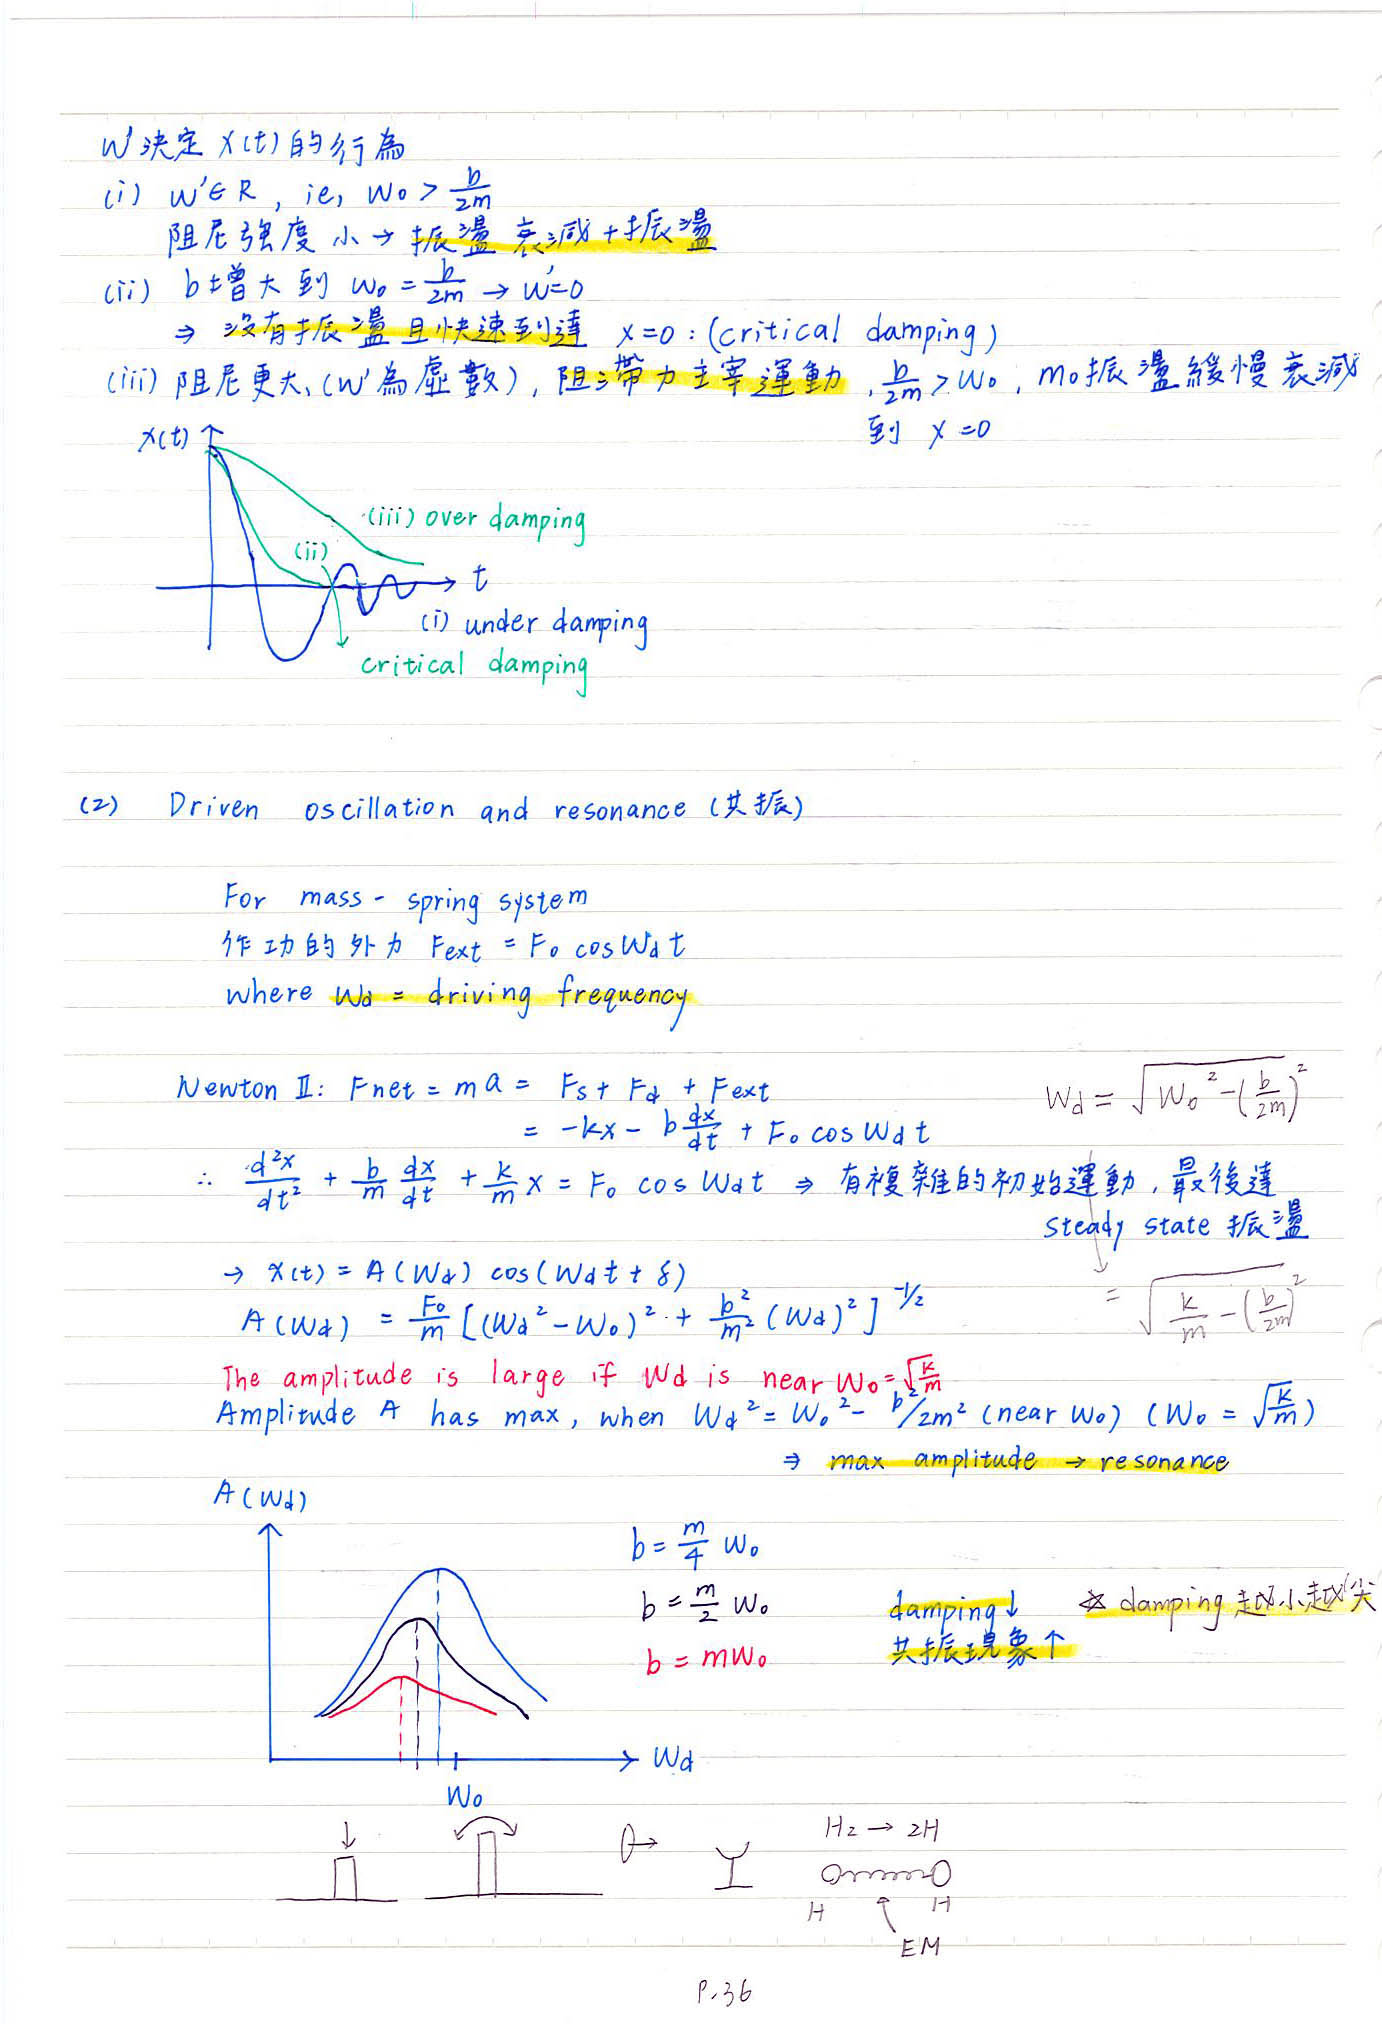 W'決定 X(t)的行為
(i) W'∈R, ie, W₀ > b/2m
阻尼強度 小 → 振盪 衰減+振盪
(ii) b增大到 W₀ = b/2m → W'=0
⇒ 沒有振盪且快速到達 x=0 : (critical damping)
(iii) 阻尼更大, (W'為虛數), 阻滯力主宰運動, b/2m > W₀, no振盪緩慢衰減
到 x=0
x(t)
(iii) over damping
(ii)
t
(i) under damping
critical damping
(2) Driven oscillation and resonance (共振)
For mass - spring system
作功的外力 Fext = F₀ cosWdt
where Wd = driving frequency
Newton II: Fnet = ma = Fs + Fd + Fext
Wd = √(W₀² - (b/2m)²)
= -kx - b dx/dt + F₀ cosWdt
∴ d²x/dt² + b/m dx/dt + k/m x = F₀ cosWdt ⇒ 有複雜的初始運動, 最後達
steady state 振盪
→ x(t) = A(Wd) cos(Wdt + δ)
= √(k/m - (b/2m)²)
A(Wd) = F₀/m [(Wd² - W₀)² + b²/m² (Wd)²]^-1/2
The amplitude is large if Wd is near W₀=√(k/m)
Amplitude A has max, when Wd² = W₀² - b²/2m² (near W₀) (W₀ = √(k/m))
⇒ max amplitude → resonance
A(Wd)
b = m/4 W₀
b = m/2 W₀
b = mW₀
damping↓
共振現象↑
☆ damping 越小越尖
Wd
W₀
H₂ → 2H
H H
EM
P.36